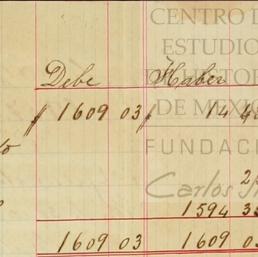 CENTRO D
ESTUDIO
DE HISTOR
DE MEXIC
FUNDACI
Carlos
Debe Haber
1609 03 14
to
2
1594 33
1609 03 1609 0